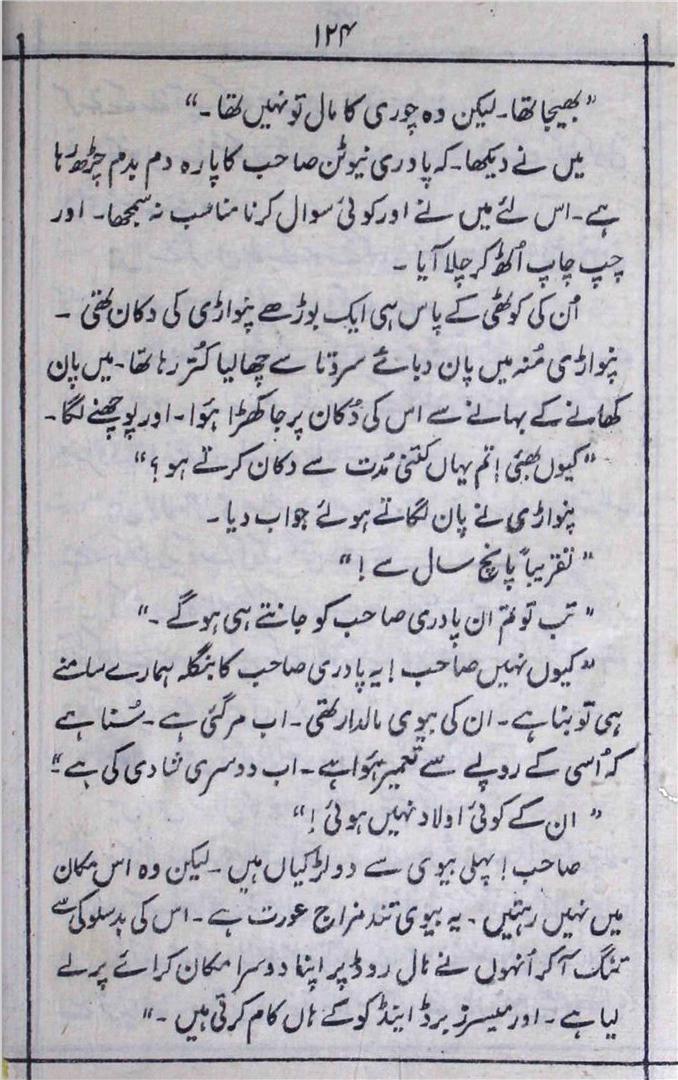 ۱۲۴
”بھیجا تھا۔ لیکن وہ چوری کا مال تو نہیں تھا۔“
میں نے دیکھا۔ کہ پادری نیوٹن صاحب کا پارہ دم بدم چڑھ رہا
ہے۔ اس لئے میں نے اور کوئی سوال کرنا مناسب نہ سمجھا۔ اور
چپ چاپ اُٹھ کر چلا آیا ۔
اُن کی کوٹھی کے پاس ہی ایک بوڑھے پنواڑی کی دکان تھی ۔
پنواڑی مُنہ میں پان دبائے سروتا سے چھالیا کُتر رہا تھا۔ میں پان
کھانے کے بہانے سے اس کی دُکان پر جا کھڑا ہُوا۔ اور پوچھنے لگا۔
”کیوں بھئی! تم یہاں کتنی مُدت سے دکان کرتے ہو؟“
پنواڑی نے پان لگاتے ہوئے جواب دیا ۔
”تقریباً پانچ سال سے!“
”تب تو تم ان پادری صاحب کو جانتے ہی ہوگے ۔“
”کیوں نہیں صاحب! یہ پادری صاحب کا بنگلہ ہمارے سامنے
ہی تو بنا ہے۔ ان کی بیوی مالدار تھی۔ اب مر گئی ہے۔ سُنا ہے
کہ اُسی کے روپے سے تعمیر ہُوا ہے۔ اب دوسری شادی کی ہے“
”ان کے کوئی اولاد نہیں ہوئی!“
صاحب! پہلی بیوی سے دو لڑکیاں ہیں ۔ لیکن وہ اس مکان
میں نہیں رہتیں ۔ یہ بیوی تند مزاج عورت ہے۔ اس کی بدسلوکی سے
تنگ آکر اُنہوں نے مال روڈ پر اپنا دوسرا مکان کرائے پر لے
لیا ہے۔ اور میسرز برڈ اینڈ کو کے ہاں کام کرتی ہیں ۔“